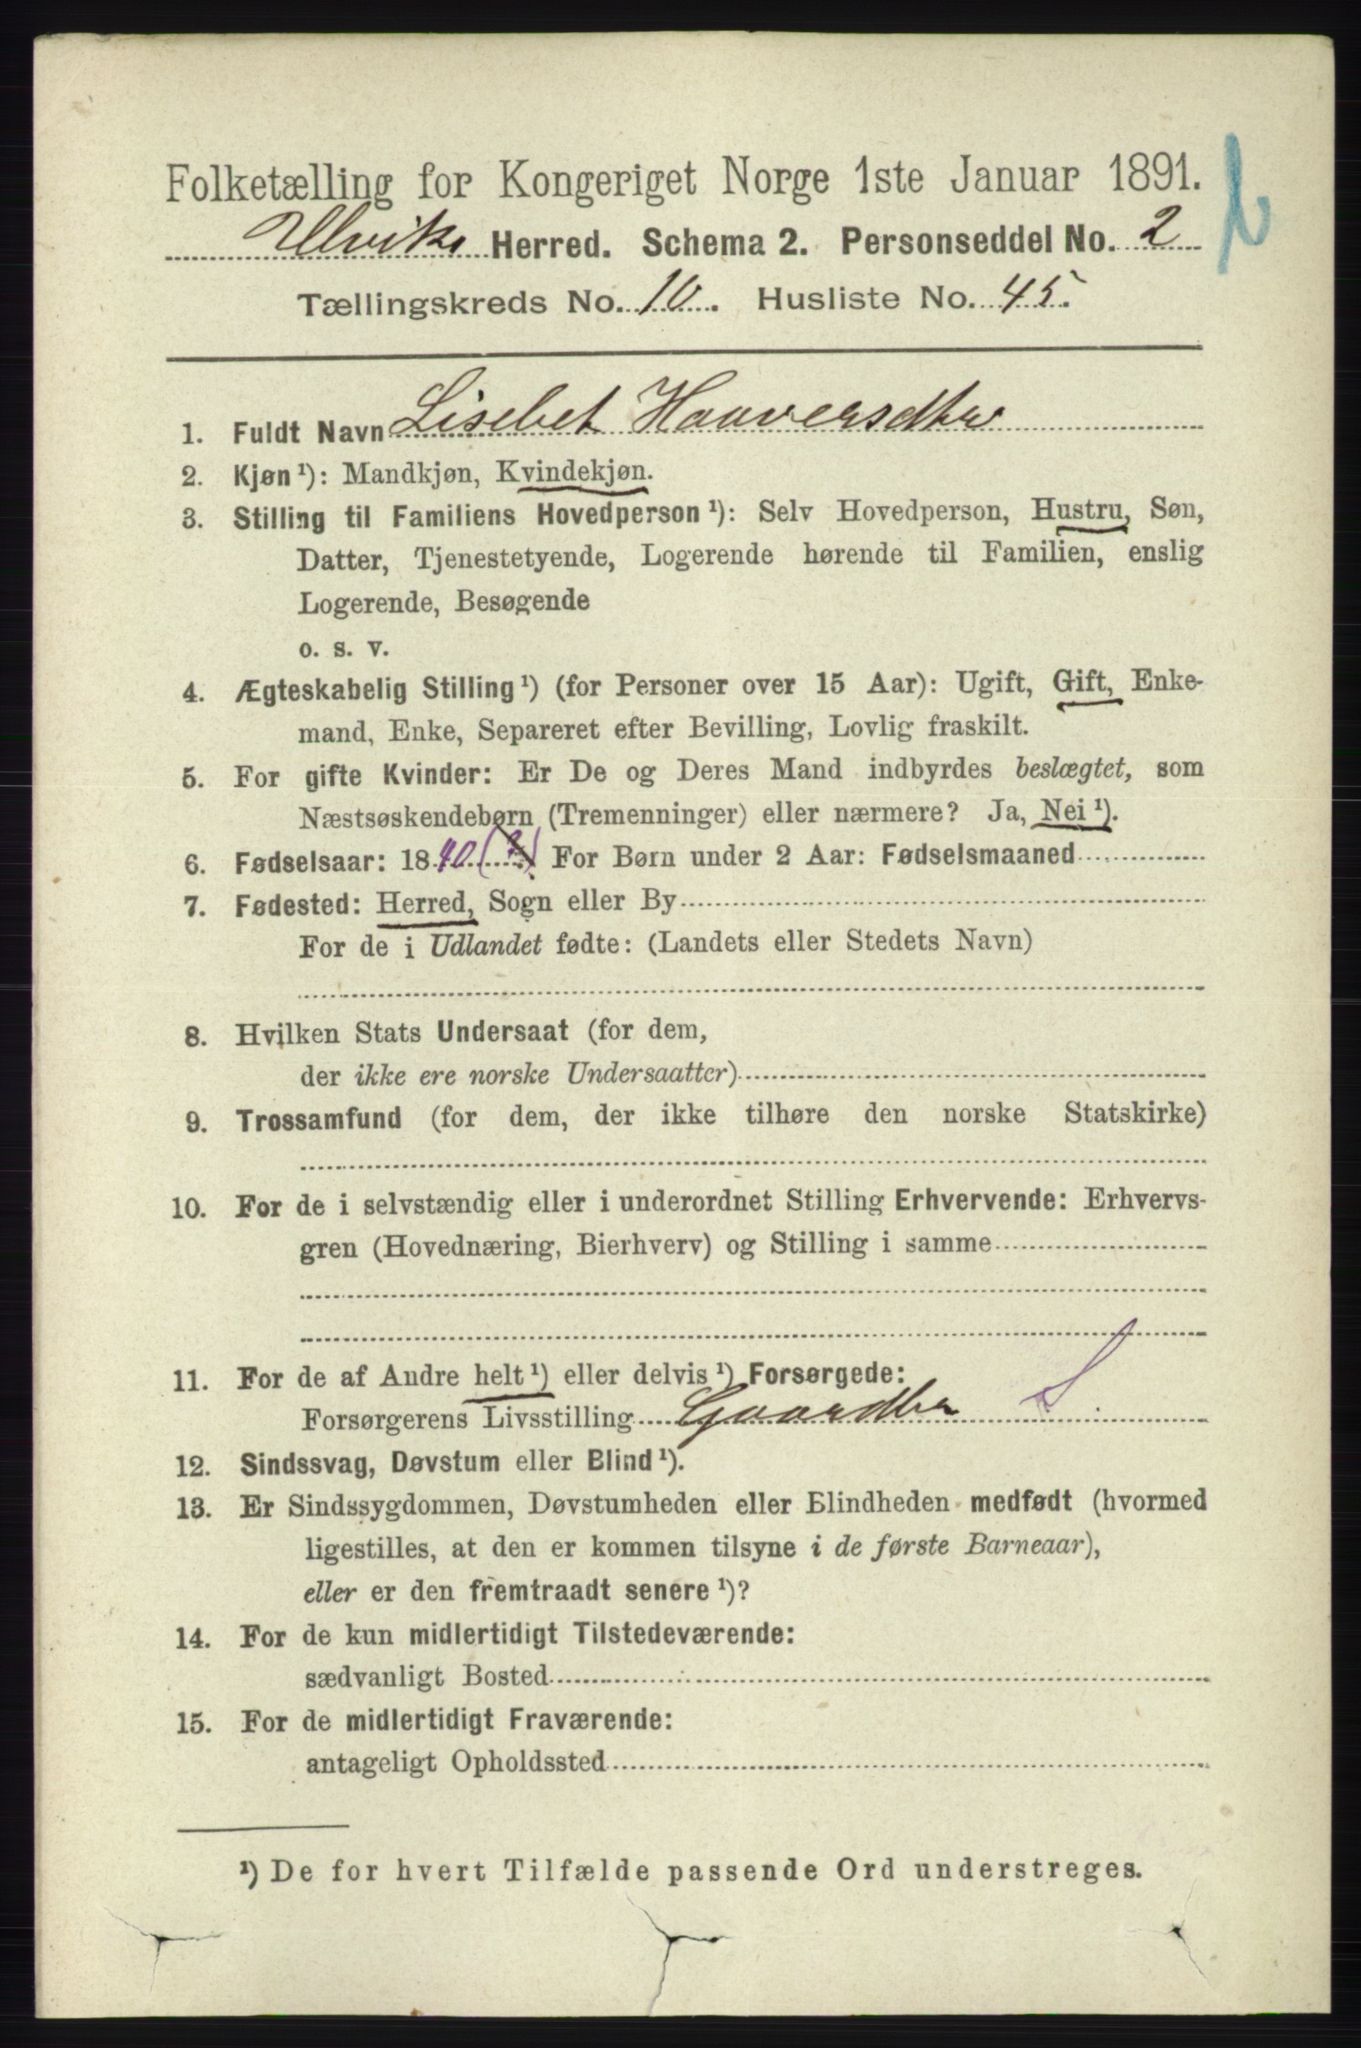 Folketælling for Kongeriget Norge 1ste Januar 1891.
Ulviks Herred. Schema 2. Personseddel No. 2
Tællingskreds No. 10. Husliste No. 45.
1. Fuldt Navn Lisebet Haaversdtr
2. Kjøn¹): Mandkjøn, Kvindekjøn.
3. Stilling til Familiens Hovedperson¹): Selv Hovedperson, Hustru, Søn,
Datter, Tjenestetyende, Logerende hørende til Familien, enslig
Logerende, Besøgende
o. s. v.
4. Ægteskabelig Stilling¹) (for Personer over 15 Aar): Ugift, Gift, Enke-
mand, Enke, Separeret efter Bevilling, Lovlig fraskilt.
5. For gifte Kvinder: Er De og Deres Mand indbyrdes beslægtet, som
Næstsøskendebørn (Tremenninger) eller nærmere? Ja, Nei¹).
6. Fødselsaar: 1840 (?) For Børn under 2 Aar: Fødselsmaaned
7. Fødested: Herred, Sogn eller By
For de i Udlandet fødte: (Landets eller Stedets Navn)
8. Hvilken Stats Undersaat (for dem,
der ikke ere norske Undersaatter)
9. Trossamfund (for dem, der ikke tilhøre den norske Statskirke)
10. For de i selvstændig eller i underordnet Stilling Erhvervende: Erhvervs-
gren (Hovednæring, Bierhverv) og Stilling i samme
11. For de af Andre helt¹) eller delvis¹) Forsørgede:
Forsørgerens Livsstilling Gaardbr S.
12. Sindssvag, Døvstum eller Blind¹).
13. Er Sindssygdommen, Døvstumheden eller Blindheden medfødt (hvormed
ligestilles, at den er kommen tilsyne i de første Barneaar),
eller er den fremtraadt senere¹)?
14. For de kun midlertidigt Tilstedeværende:
sædvanligt Bosted
15. For de midlertidigt Fraværende:
antageligt Opholdssted
¹) De for hvert Tilfælde passende Ord understreges.